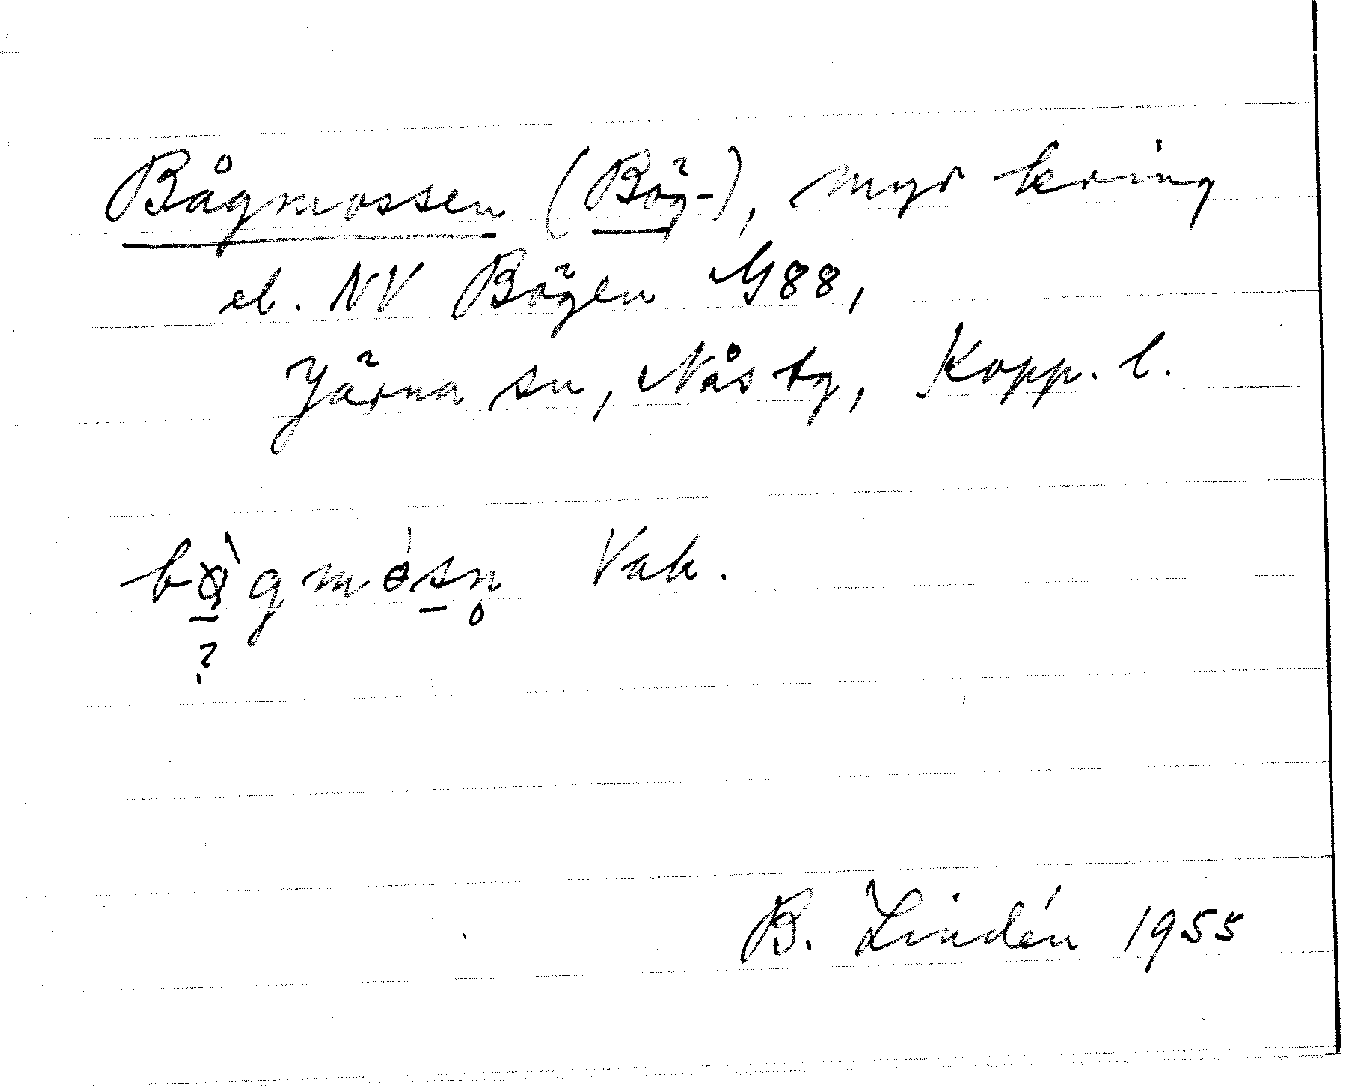 Bågmossen (Bög-), myr kring
el. NV Bögen G88,
Järna sn, Nås tg, Kopp. l.
bɷ̀gmòsn̥ Vak.
?
B. Lindén 1955